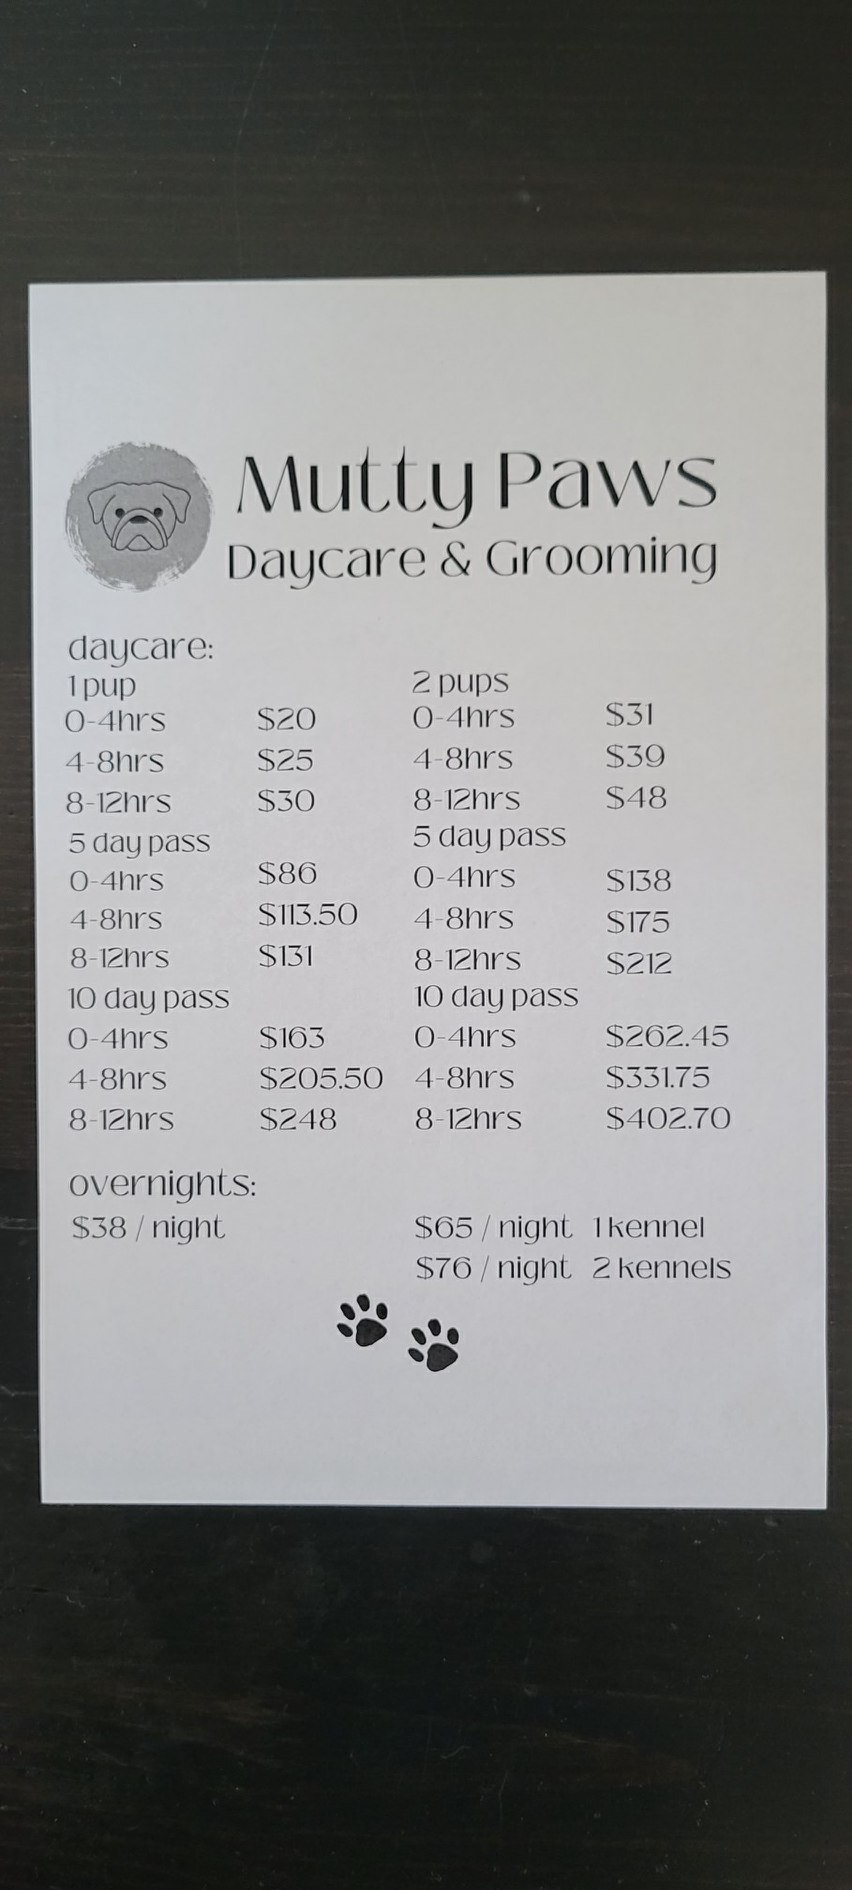 Mutty Paws
Daycare & Grooming
daycare:
1 pup 2 pups
0-4hrs $20 0-4hrs $31
4-8hrs $25 4-8hrs $39
8-12hrs $30 8-12hrs $48
5 day pass 5 day pass
0-4hrs $86 0-4hrs $138
4-8hrs $113.50 4-8hrs $175
8-12hrs $131 8-12hrs $212
10 day pass 10 day pass
0-4hrs $163 0-4hrs $262.45
4-8hrs $205.50 4-8hrs $331.75
8-12hrs $248 8-12hrs $402.70
overnights:
$38 / night $65 / night 1 kennel
$76 / night 2 kennels